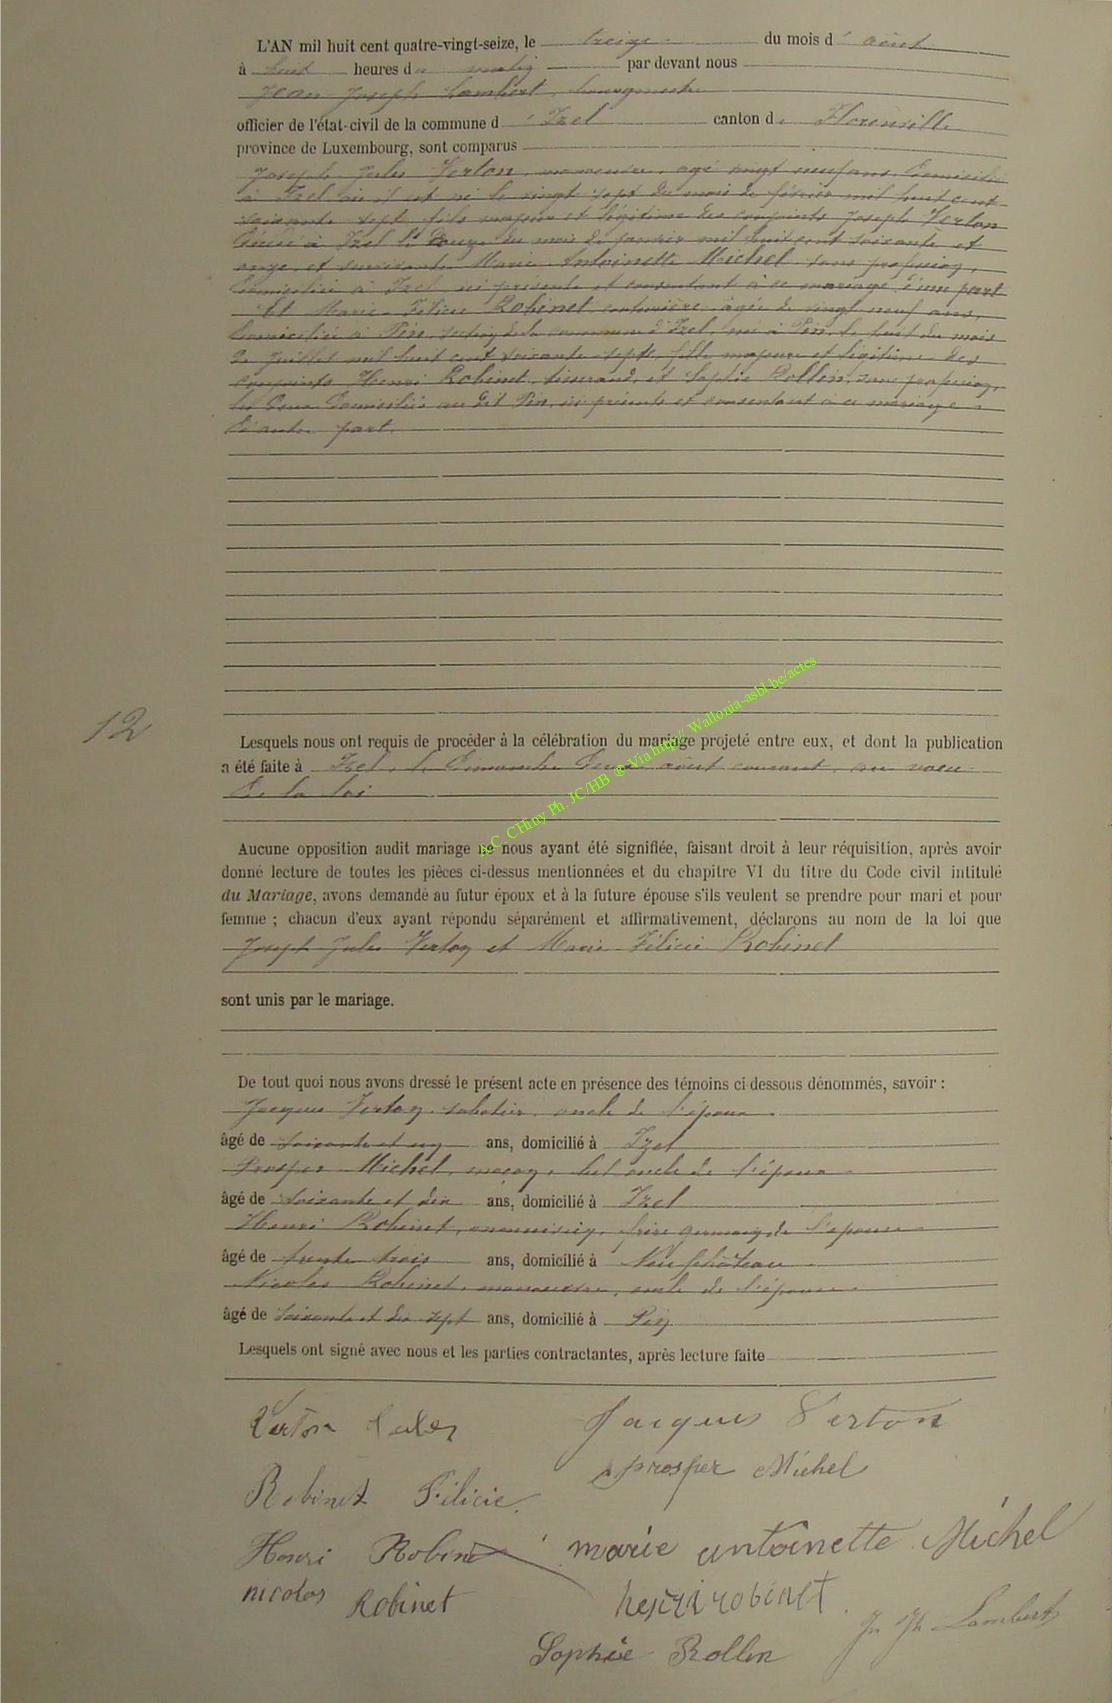 L'AN mil huit cent quatre-vingt-seize, le treize du mois d'août
à huit heures du matin par devant nous
Jean Joseph Lambert, bourgmestre
officier de l'état-civil de la commune d'Izel canton de Florenville
province de Luxembourg, sont comparus
Joseph Jules Verton, manouvrier, agé vingt neuf ans, domicilié
à Izel où il est né le vingt sept du mois de février mil huit cent
soixante sept, fils majeur et légitime des conjoints Joseph Verton
décédé à Izel le douze du mois de janvier mil huit cent soixante et
onze, et survivante Marie Antoinette Michel, sans profession,
domiciliée à Izel, ici présente et consentant à ce mariage d'une part
Et Marie Félicie Robinet, couturière, âgée de vingt neuf ans,
domiciliée à Pin, section de la commune d'Izel, née à Pin, le huit du mois
de Juillet mil huit cent soixante sept, fille majeure et légitime des
conjoints Henri Robinet, tisserand, et Sophie Rollin, sans profession,
les deux domiciliés au dit Pin, ici présents et consentant à ce mariage
d'autre part.
12
Lesquels nous ont requis de procéder à la célébration du mariage projeté entre eux, et dont la publication
a été faite à Izel, le Dimanche deux août courant, au voeu
de la loi
A.C. CHiny Ph. JC/HB ® Via http:// Wallonia-asbl.be/actes
Aucune opposition audit mariage ne nous ayant été signifiée, faisant droit à leur réquisition, après avoir
donné lecture de toutes les pièces ci-dessus mentionnées et du chapitre VI du titre du Code civil intitulé
du Mariage, avons demandé au futur époux et à la future épouse s'ils veulent se prendre pour mari et pour
femme ; chacun d'eux ayant répondu séparément et affirmativement, déclarons au nom de la loi que
Joseph Jules Verton et Marie Félicie Robinet
sont unis par le mariage.
De tout quoi nous avons dressé le présent acte en présence des témoins ci-dessous dénommés, savoir :
Jacques Verton, sabotier, oncle de l'époux
âgé de soixante et un ans, domicilié à Izel
Prosper Michel, maçon, bel oncle de l'époux
âgé de soixante et dix ans, domicilié à Izel
Henri Robinet, menuisier, frère germain de l'épouse
âgé de trente trois ans, domicilié à Neufchâteau
Nicolas Robinet, manouvrier, oncle de l'épouse
âgé de soixante et dix sept ans, domicilié à Pin
Lesquels ont signé avec nous et les parties contractantes, après lecture faite
Verton Jules Jacques Verton
prosper Michel
Robinet Félicie
Henri Robinet marie antoinette Michel
nicolas Robinet henri robinet
Jn Jh Lambert
Sophie Rollin